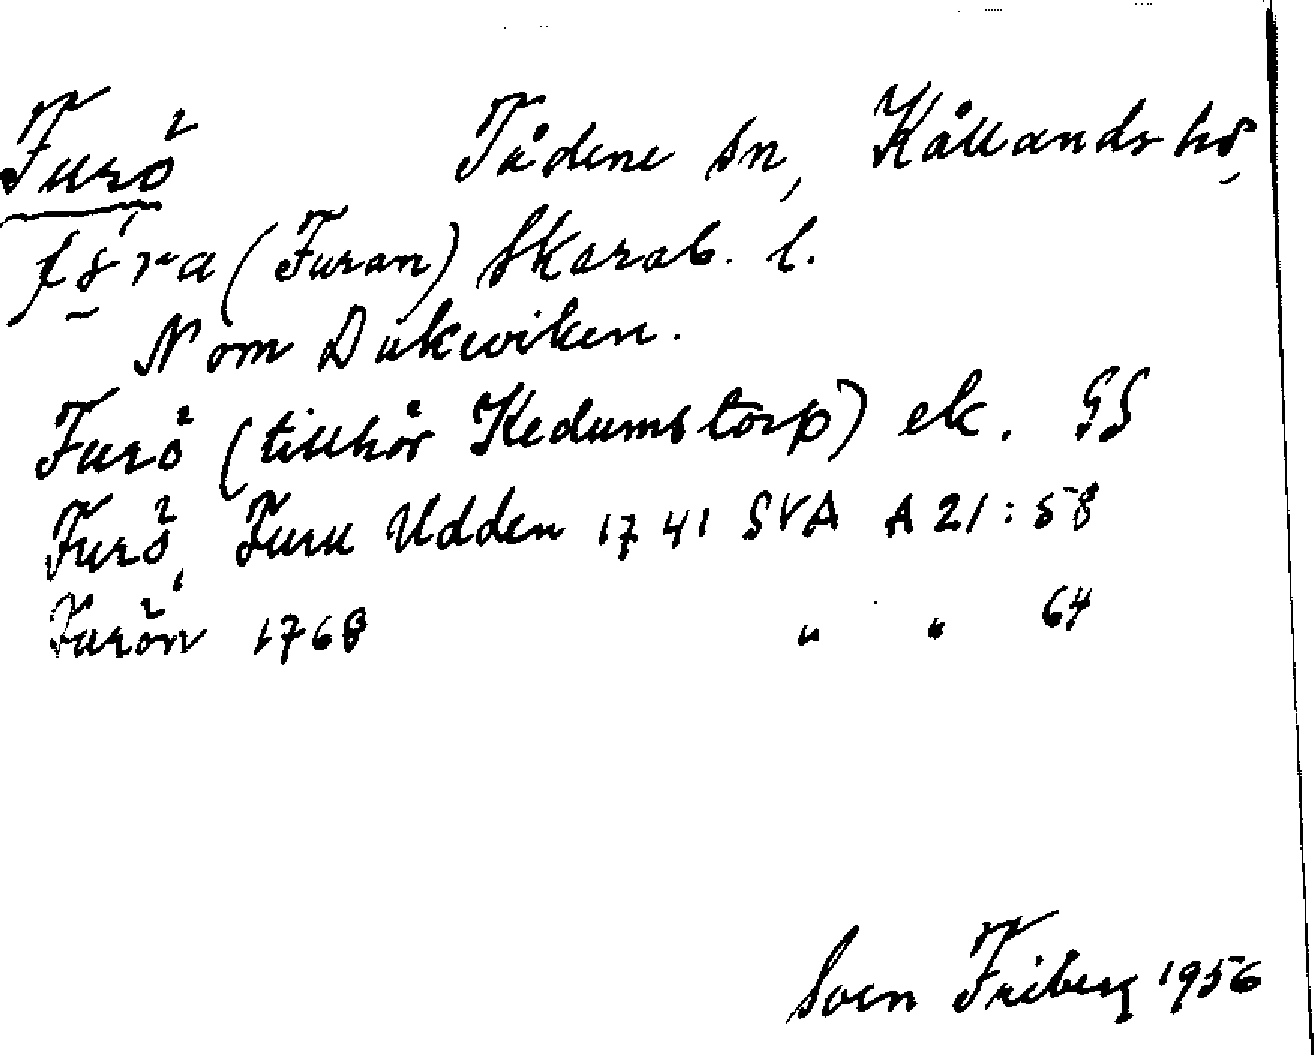 Furö Tådene sn, Kållands hd,
(Furan) Skarab. l.
N om Dukeviken.
Furö (tillhör Kedumstorp) ek. GS
Furö, Furu Udden 1741 SVA A 21:58
Furön 1768 " " 64
Sven Friberg 1956